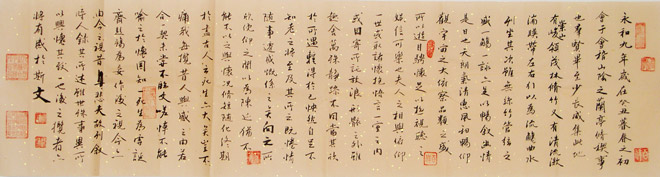 永和九年歲在癸丑暮春之初
會于會稽山陰之蘭亭脩禊事
也羣賢畢至少長咸集此地
有崇山峻領茂林脩竹又有清流激
湍暎帶左右引以為流觴曲水
列坐其次雖無絲竹管弦之
盛一觴一詠亦足以暢敘幽情
是日也天朗氣清惠風和暢仰
觀宇宙之大俯察品類之盛
所以遊目騁懷足以極視聽之
娛信可樂也夫人之相與俯仰
一世或取諸懷抱悟言一室之內
或因寄所託放浪形骸之外雖
趣舍萬殊靜躁不同當其欣
於所遇暫得於己怏然自足不
知老之將至及其所之既惓情
隨事遷感慨係之矣向之所
欣俛仰之間以為陳迹猶不
能不以之興懷況脩短隨化終期
於盡古人云死生亦大矣豈不
痛哉每攬昔人興感之由若
合一契未嘗不臨文嗟悼不能
喻之於懷固知一死生為虛誕
齊彭殤為妄作後之視今亦
由今之視昔悲夫故列敘
時人錄其所述雖世殊事異所
以興懷其致一也後之攬者亦
將有感於斯文